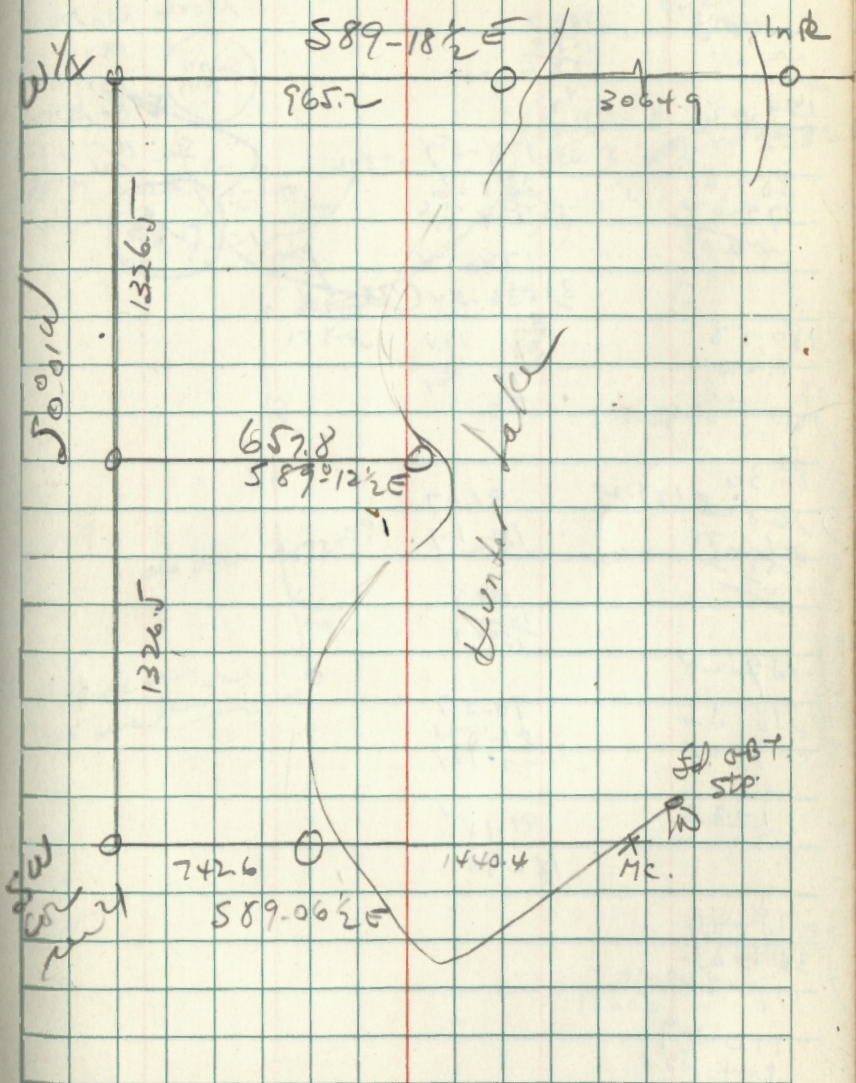 S89-18½ E
In Pl
W¼
965.2
3064.9
1326.5
S0°-01W
657.8
S89°-12½E
Hunter Lake
1326.5
Fd. OBT.
Stp.
742.6
1440.4
MC.
S89-06½E
SW
Cor